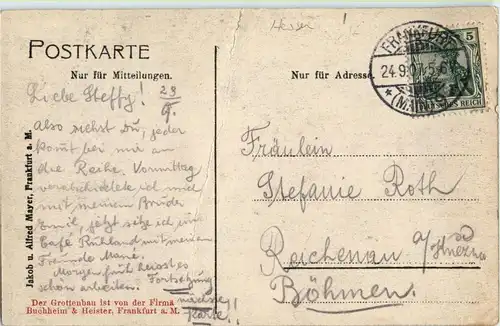 Hessen
POSTKARTE
Nur für Mitteilungen.
Nur für Adresse.
FRANKFURT
24.9.07. 5-6
* (MAIN)
5
DEUTSCHES REICH
Liebe Steffy! 23/9.
Also siehst Du, jeder
komt bei mir an
die Reihe. Vormittag
verabschiedete ich mich
mit meinem Bruder
Emil, jetzt sitze ich im
Café Ruhland mit meinem
Freunde Mané.
Morgen früh heisst es
schon arbeiten. Fortsetzung
nächste
Karte!!
Jakob u. Alfred Mayer, Frankfurt a. M.
Der Grottenbau ist von der Firma
Buchheim & Heister, Frankfurt a. M.
Fräulein
Stefanie Roth
Reichenau a/
Böhmen.